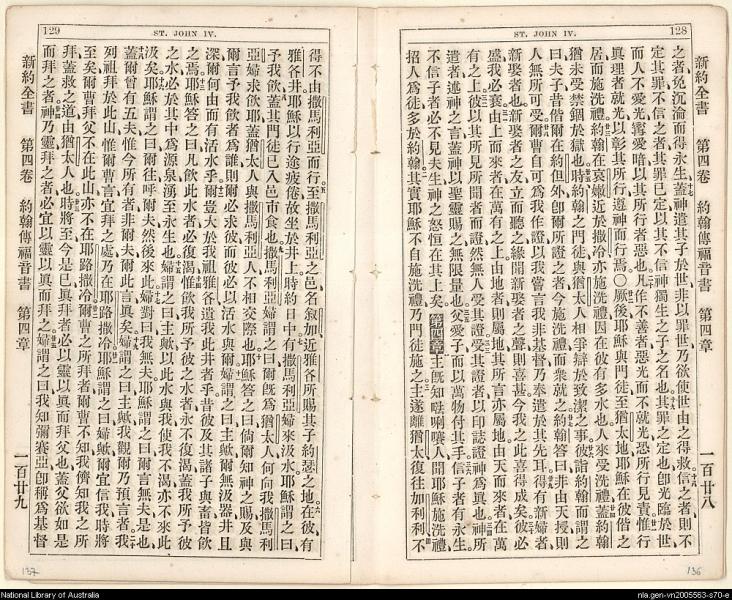 128
ST. JOHN IV.
新約全書 第四卷 約翰傳福音書 第四章 一百廿八
之者免沉淪而得永生蓋神遣其子於世非以罪世乃欲使世由之得救信之者則不
定其罪不信之者其罪已定以其不信神獨生之子之名也其罪之定也卽光臨於世
而人不愛光寧愛暗以其所行者惡也凡作不善者惡光而不就光恐所行見責惟行
真理者就光以彰其所行遵神而行焉〇厥後耶穌與門徒至猶太地耶穌在彼偕之
居而施洗禮約翰在哀嫩近於撒冷亦施洗禮因在彼有多水也人來受洗禮蓋約翰
猶未受禁錮於獄也時約翰之門徒與猶太人相爭辯於致潔之事彼詣約翰而謂之
曰夫子昔偕爾在約但外卽爾所證之者今施洗禮而衆就之約翰答曰非由天授則
人無所可受爾曹自可為我作證以我嘗言我非基督乃奉遣於其先耳得有新婦者
新娶者也新娶者之友立而聽之緣聞新娶者之聲則喜甚今我之此喜得成矣彼必
盛我必衰由上而來者在萬有之上由地者則屬地其所言亦屬地由天而來者在萬
有之上彼以其所見所聞者而證然無人受其證受其證者以印誌證神爲真也神所
遣者述神之言蓋神以聖靈賜之無限量也父愛子而以萬物付其手信子者有永生
不信子者必不見夫生神之怒恒在其上矣 第四章 主既知𠵽唎㘔人聞耶穌施洗禮
招人爲徒多於約翰其實耶穌不自施洗禮乃門徒施之主遂離猶太復往加利利不
136
129
ST. JOHN IV.
得不由撒馬利亞而行至撒馬利亞之邑名叙加近雅各所賜其子約瑟之地在彼有
雅各井耶穌以行途疲倦故坐於井上時約日中有撒馬利亞婦來汲水耶穌謂之曰
予我飲蓋其門徒已入邑市食也撒馬利亞婦謂之曰爾既爲猶太人何向我撒馬利
亞婦求飲耶蓋猶太人與撒馬利亞人不相交際也耶穌答之曰倘爾知神之賜及與
爾言予我飲者爲誰則爾必求彼而彼必以活水與爾婦謂之曰主歟爾無汲器井且
深爾何由而有活水乎爾豈大於我祖雅各遺我此井者乎昔彼及其諸子與畜皆飲
之焉耶穌答之曰凡飲此水者必復渴惟飲我所予彼之水者永不復渴蓋我所予彼
之水必於其中爲源泉湧至永生也婦謂之曰主歟以此水與我使我不渴亦不來此
汲矣耶穌謂之曰爾往呼爾夫然後來此婦對曰我無夫耶穌謂之曰爾言無夫是也
蓋爾曾有五夫惟今所有者非爾夫爾此言真矣婦謂之曰主歟我觀爾乃預言者我
列祖拜於此山惟爾曹言宜拜之處乃在耶路撒冷耶穌謂之曰婦歟爾宜信我時將
至矣爾曹拜父不在此山亦不在耶路撒冷爾曹之所拜者爾曹不知我儕知我之所
拜蓋救之道由猶太人也時將至今是已真拜者必以靈以真而拜父也蓋父欲如是
而拜之者神乃靈拜之者必宜以靈以真而拜之婦謂之曰我知彌賽亞卽稱爲基督
新約全書 第四卷 約翰傳福音書 第四章 一百廿九
137
National Library of Australia
nla.gen-vn2005563-s70-e